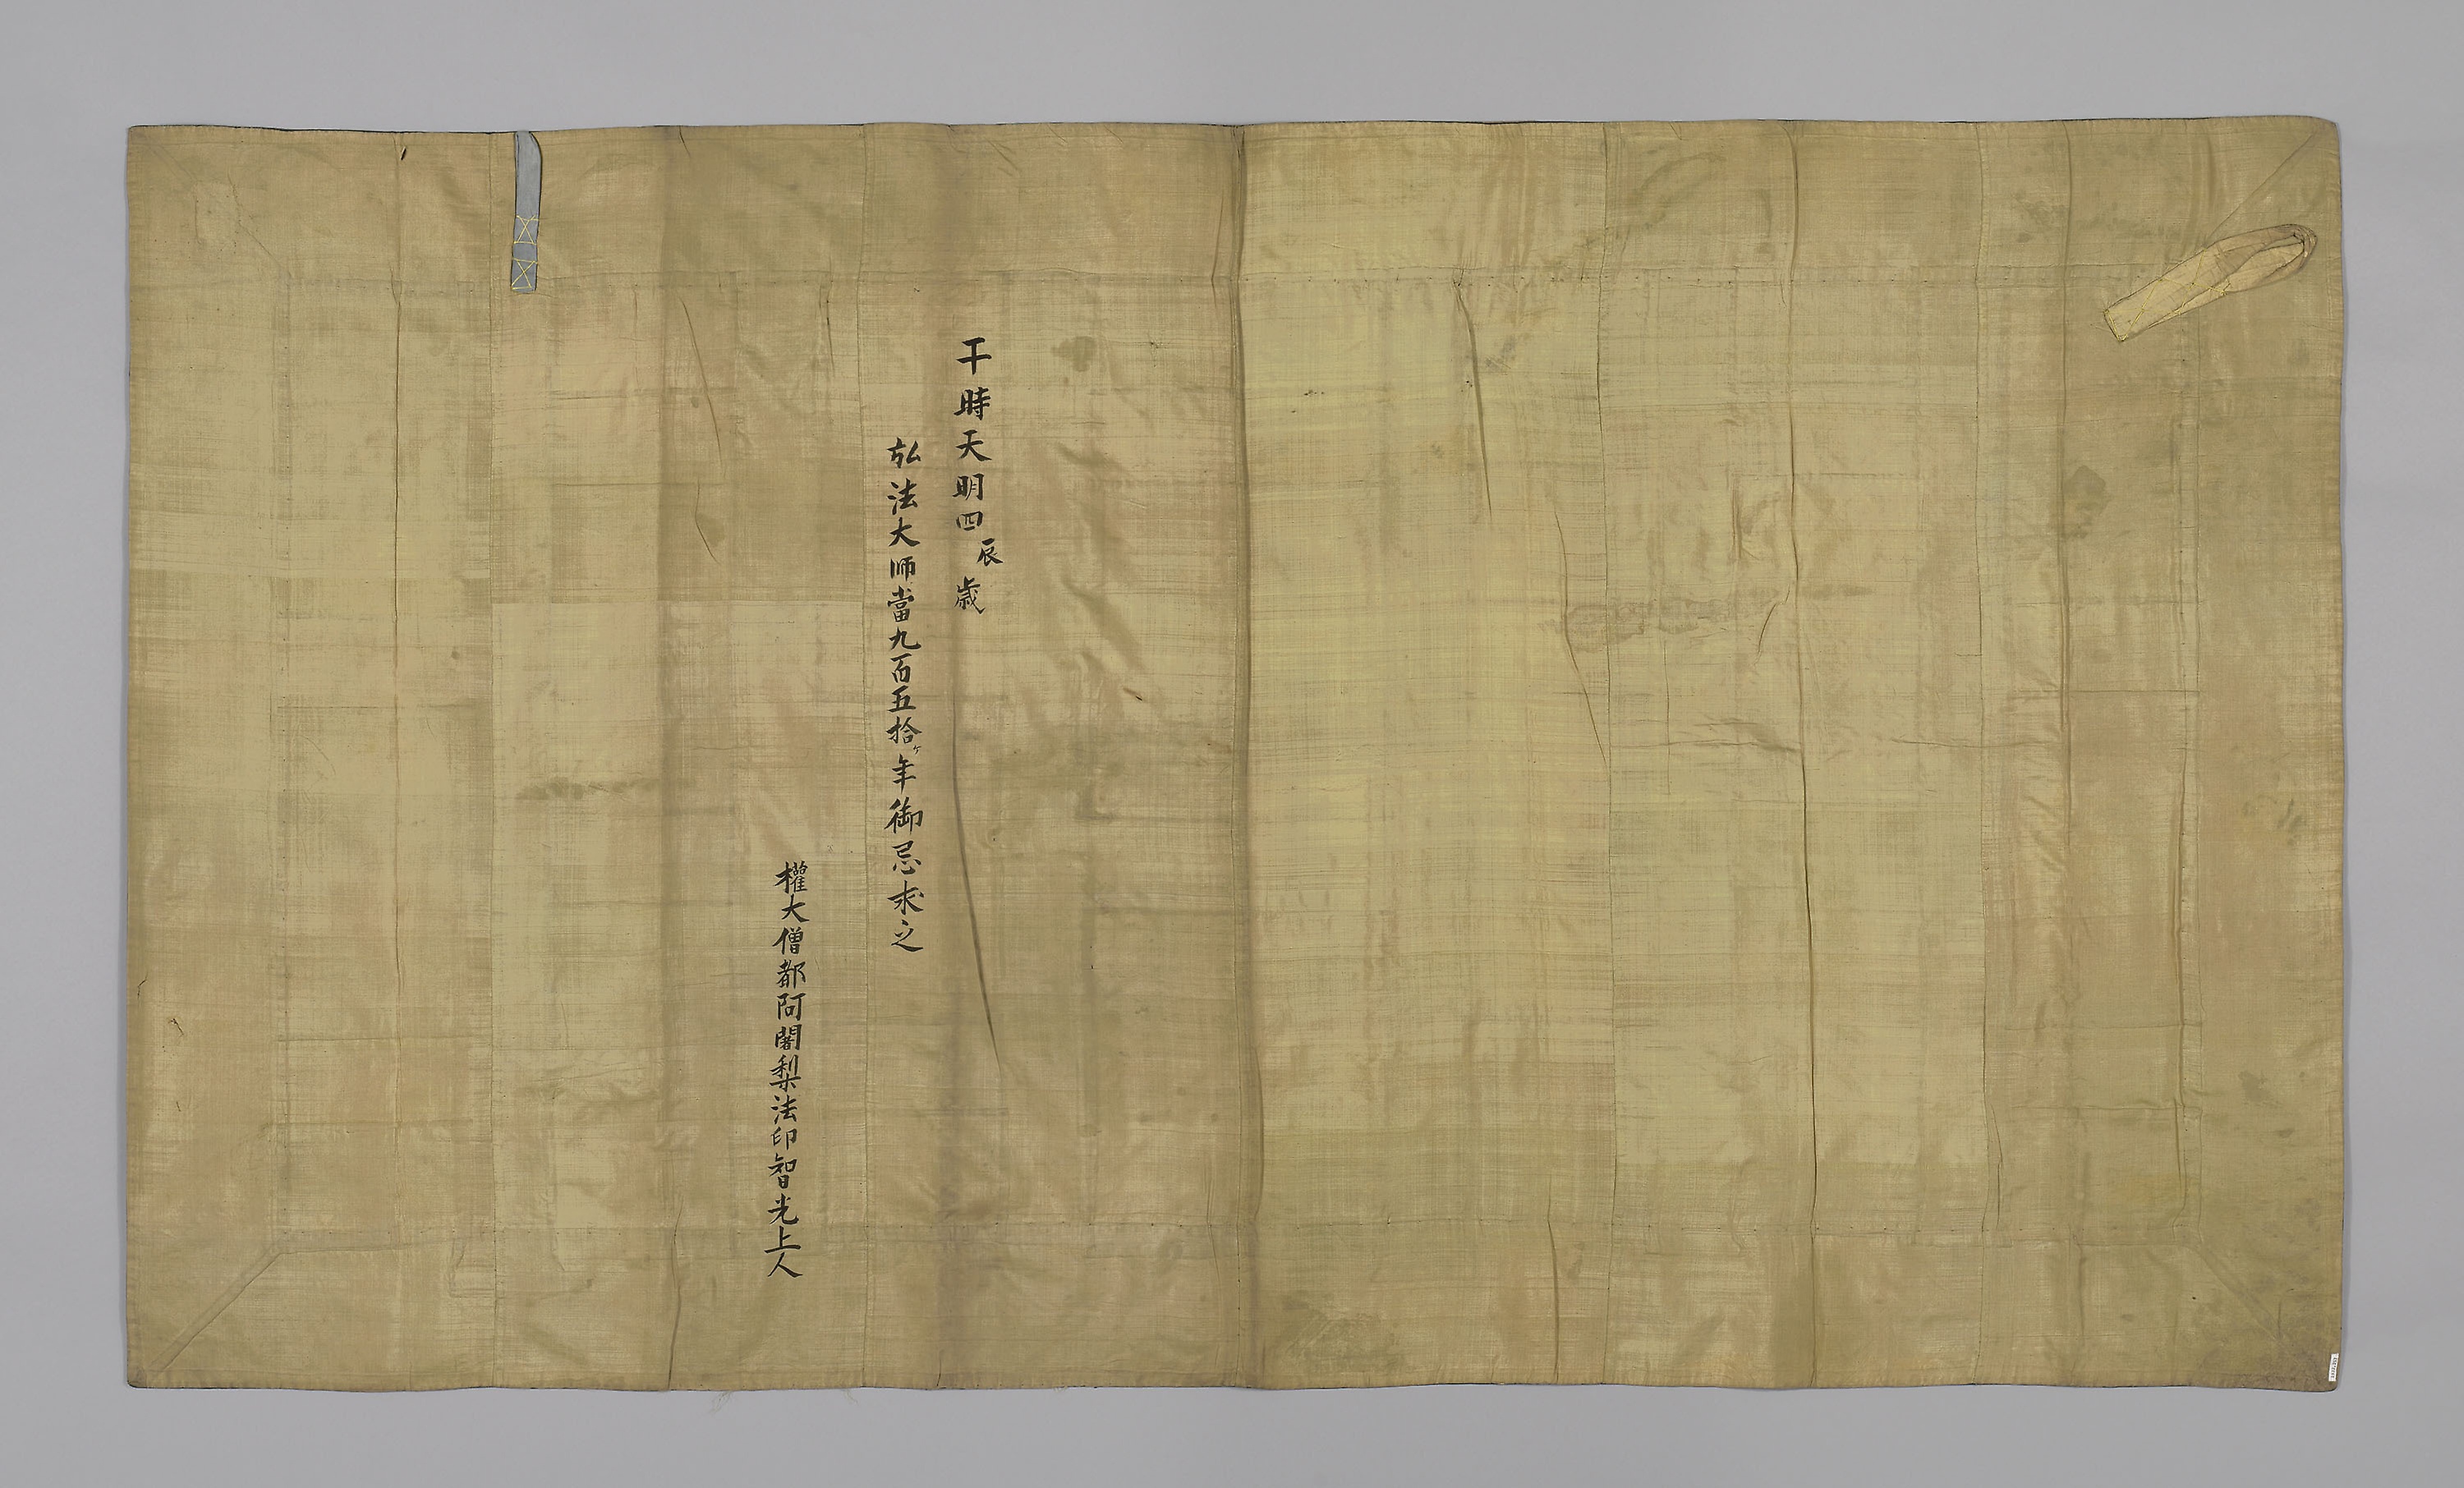 干時天明四辰歳
弘法大師當九百五拾ケ年御忌求之
權大僧都阿闍梨法印智光上人